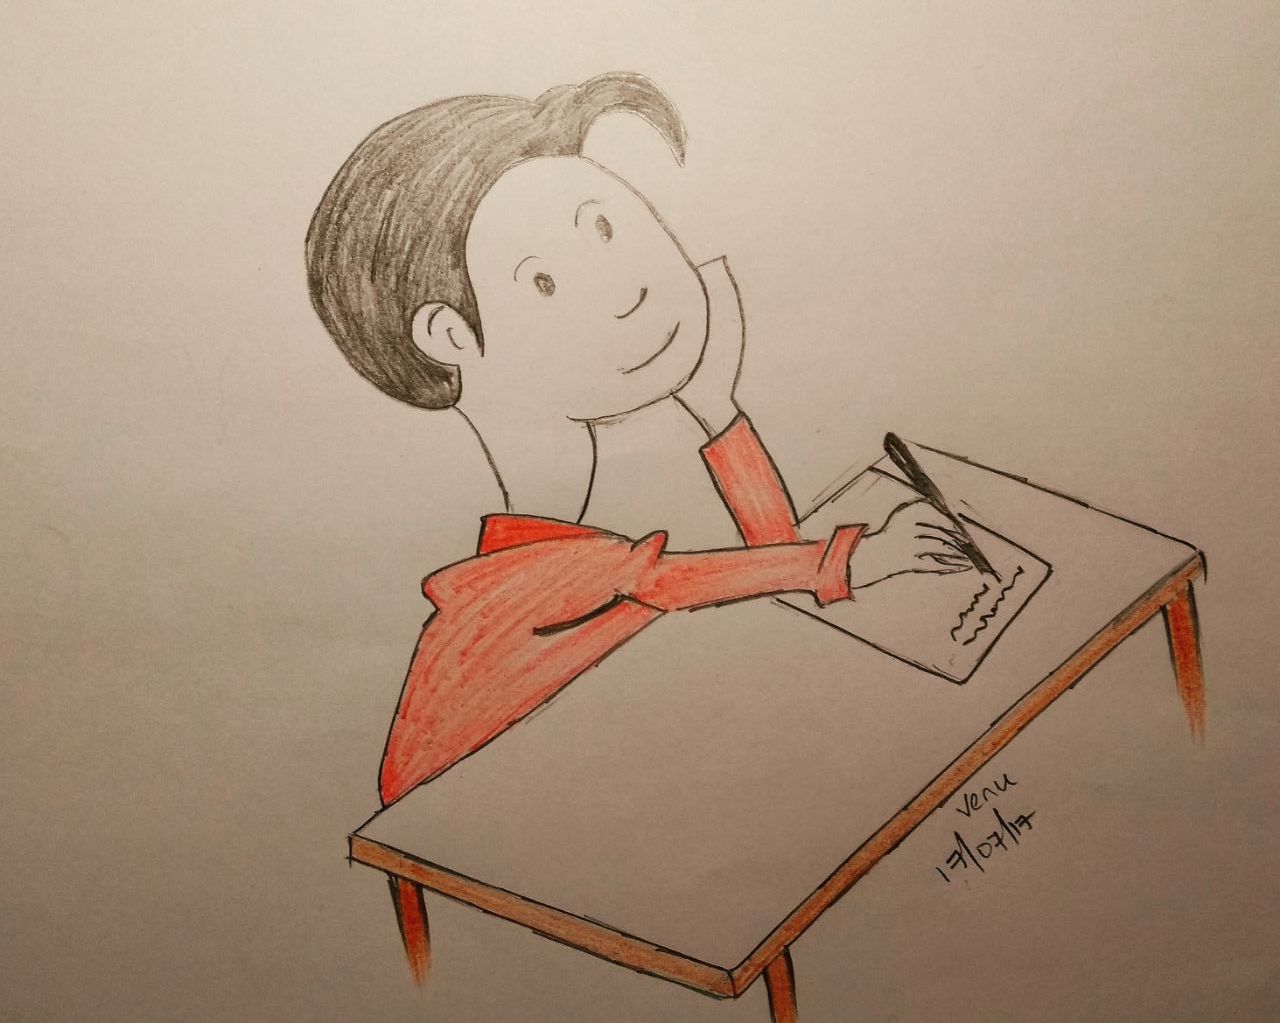 venu
17/07/17